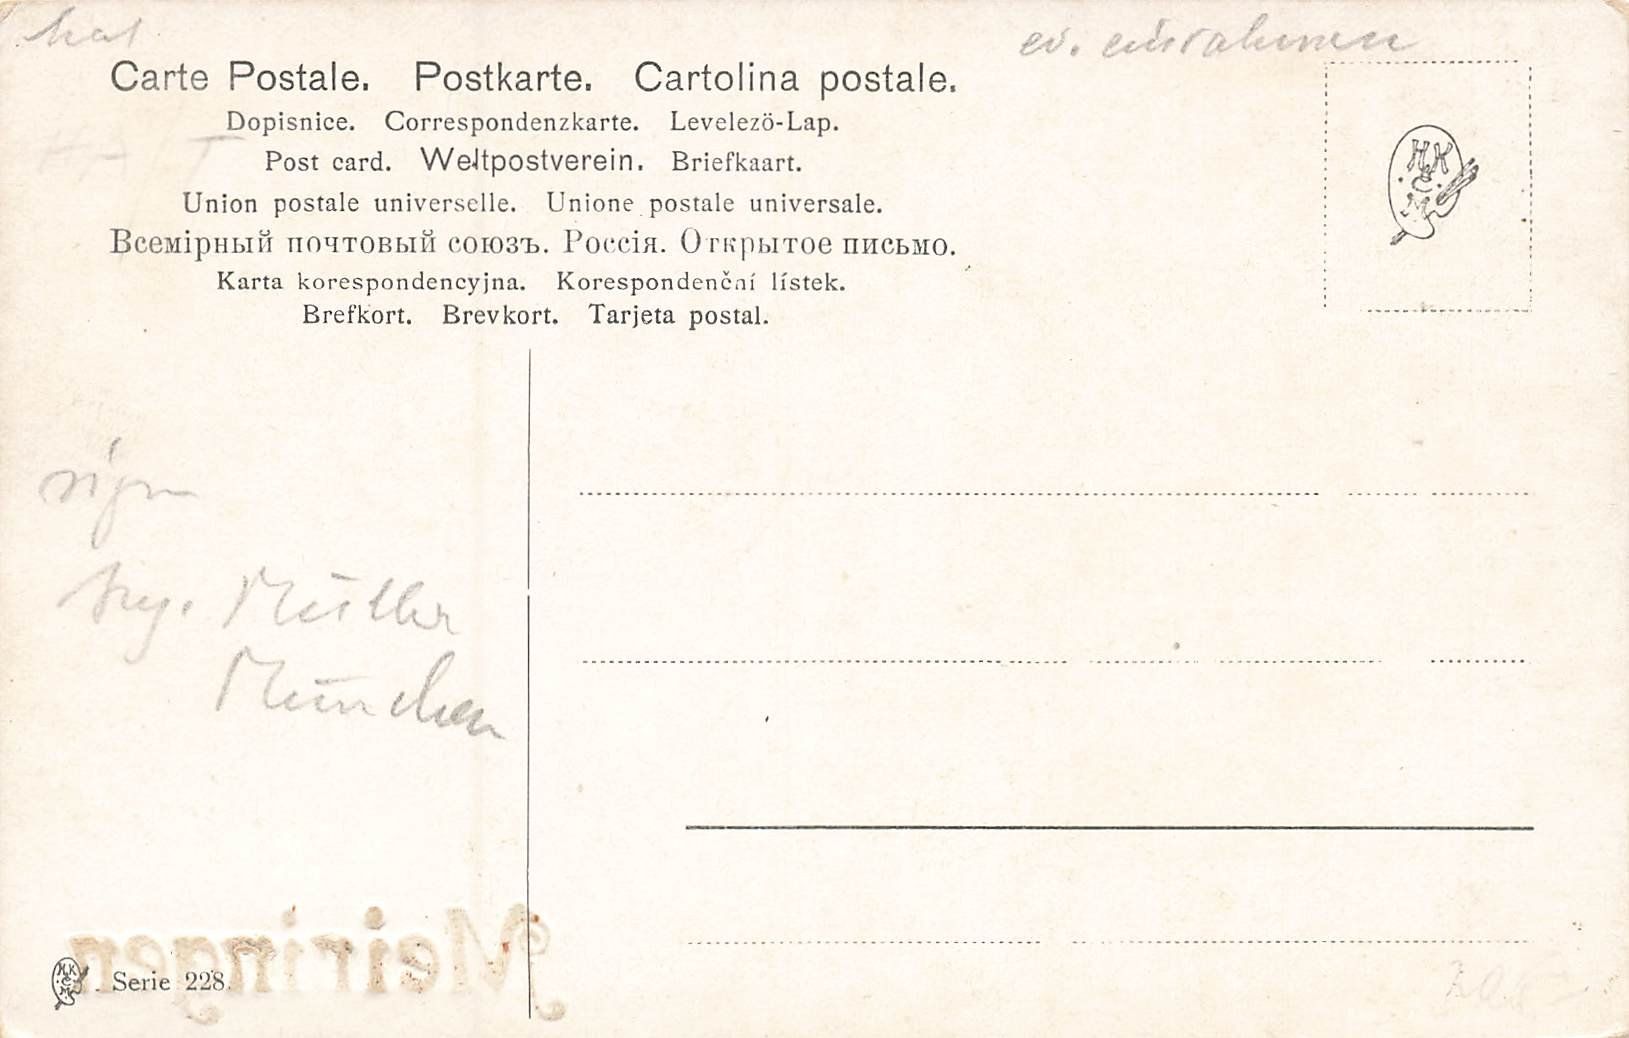 ev. einrahmen
Carte Postale. Postkarte. Cartolina postale.
Dopisnice. Correspondenzkarte. Levelezö-Lap.
Post card. Weltpostverein. Briefkaart.
Union postale universelle. Unione postale universale.
Всемірный почтовый союзъ. Россія. Открытое письмо.
Karta korespondencyjna. Korespondenční lístek.
Brefkort. Brevkort. Tarjeta postal.
HK
E
M
sign
Müller
München
Meiringen
HK
E
M
Serie 228.